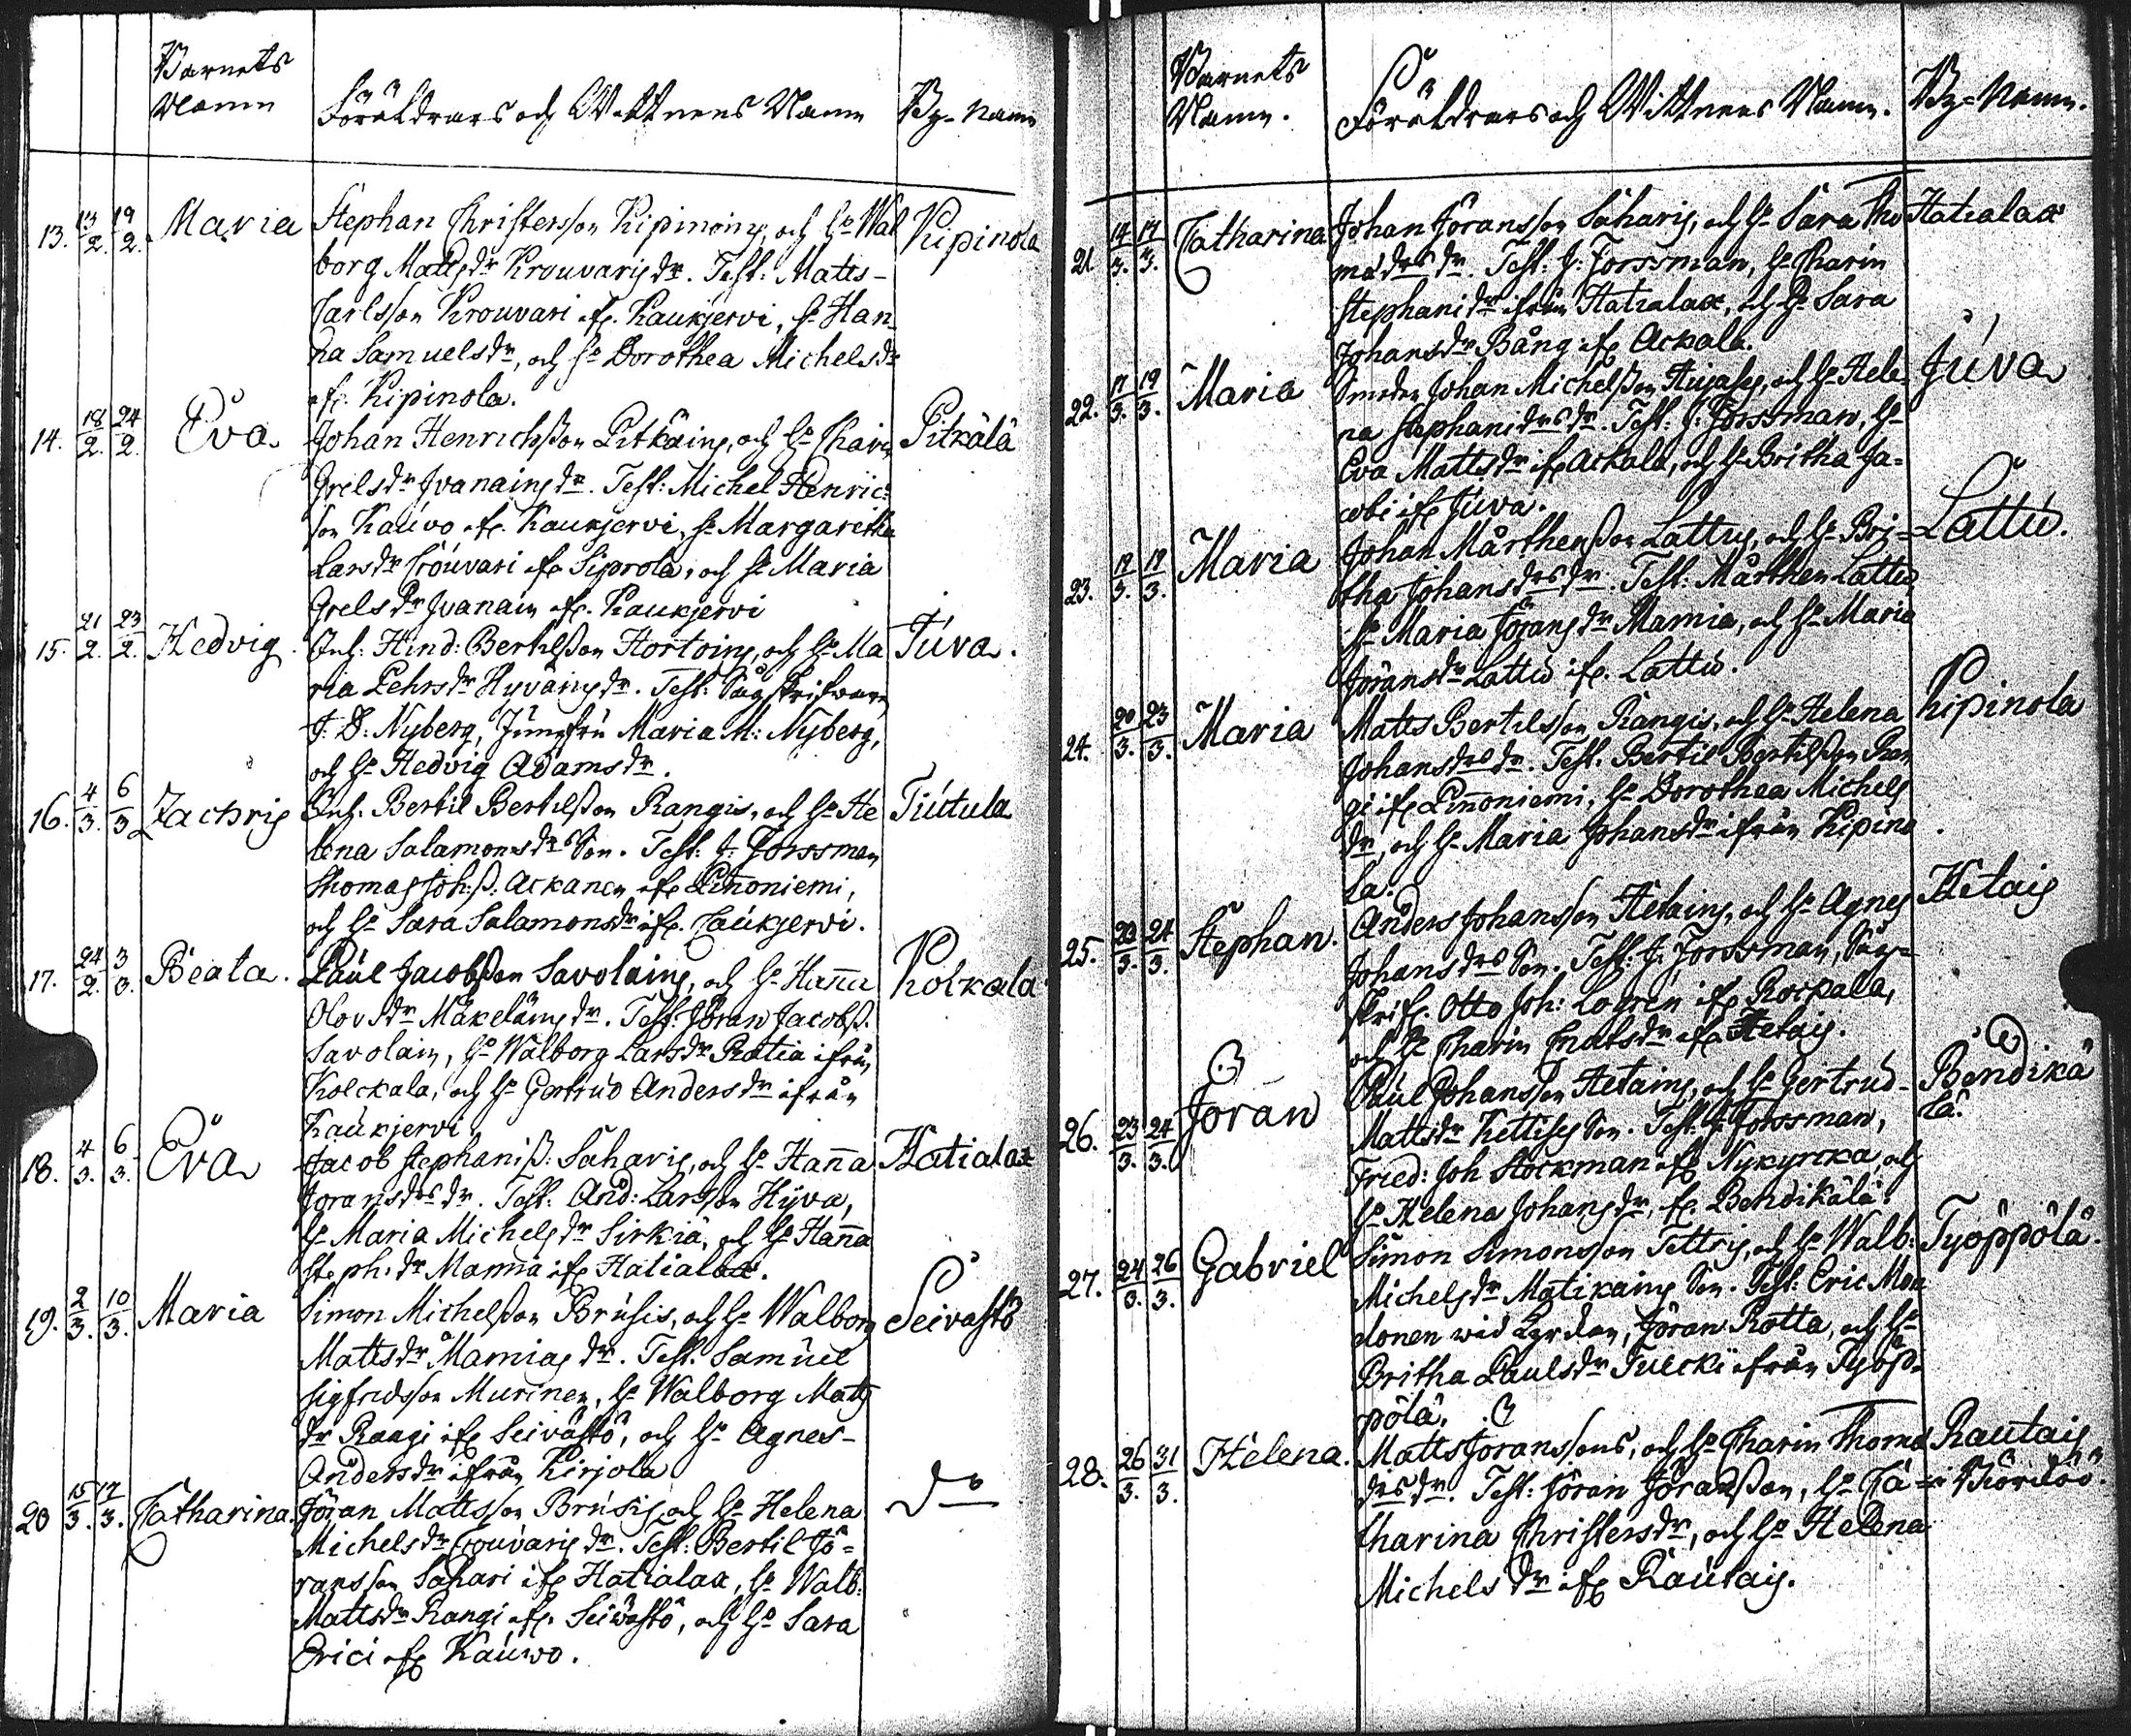 Barnets
Namn
Föräldrars och Wittnens Namn
By-namn
13. 13/2. 19/2. Maria Stephan Christersson Kipinoins, och H:o Wal Kipinola
borg Mattsdr Krouvaris dr. Test: Matts-
Carlsson Krouvari ifr. Kaukjervi, H:o Han
na Samuelsdr, och H:o Dorothea Michelsdr
ifr. Kipinola.
14. 18/2. 24/2. Eva Johan Henrichsson Pitkäins, och H:o Charin Pitkälä
Grelsdr Ivanains dr. Test: Michel Henric:
son Kauvo ifr. Kaukjervi, H:o Margaretha
Larsdr Crouvari ifr Siprola, och H:o Maria
Grelsdr Ivanain ifr. Kaukjervi
15. 21/2. 23/2. Hedvig. Inh: Hind: Bertilsson Hortoins, och H:o Ma Juva.
ria Pehrsdr Hyväins dr. Test: Sågskrifwaren
J: D: Nyberg, Jungfru Maria M: Nyberg,
och H:o Hedvig Adamsdr.
16. 4/3. 6/3 Zachris Inh: Bertil Bertilsson Rangis, och H:o He Tiutula
lena Salamonsdrs Son. Test: J: Forssman
Thomas Joh:ss: Ackanen ifr Pinnoniemi,
och H:o Sara Salamonsdr ifr. Caukjervi.
17. 24/2. 3/3. Beata. Paul Jacobsson Savolains, och H:o Hanna Kolkala
Olovsdr Mäkeläins dr. Test: Jöran Jacobss.
Savolain, H:o Walborg Larsdr Ratia ifrån
Kolckala, och H:o Gertrud Andersdr ifrån
Kaukjervi
18. 4/3. 6/3. Eva Jacob Stephaniss: Saharis, och H:o Hanna Hatialax
Joransdrs dr. Test: And: Larsson Hyva,
H:o Maria Michelsdr Sirkiä, och H:o Hanna
Steph: dr Mamia ifr Hatialax.
19. 2/3. 10/3. Maria Simon Michelsson Brusis, och H:o Walborg Seivastö
Mattsdr Mamias dr. Test. Samuel
Sigfridsson Murinen, H:o Walborg Matts
dr Rangi ifr Seivästö, och H:o Agnes-
Andersdr ifrån Kirjola
20 15/3. 17/3. Catharina. Jöran Mattsson Brusis, och H:o Helena Do
Michelsdr Crouvaris dr. Test: Bertil Jö-
ransson Sahari ifr Hatialax, H:o Walb:
Mattsdr Rangi ifr. Seivästö, och H:o Sara
Erici ifr Kauwo.
Barnets
Namn.
Föräldrars och Wittnens Namn.
By-Namn.
21. 14/3. 17/3. Catharina Johan Jöransson Saharis, och H:o Sara Tho Hatialax
mædrs dr. Test: J: Forssman, H:o Charin
Stephanidr ifrån Hatialax, och H:o Sara
Johansdr Bång ifr Ackala.
22. 17/3. 19/3. Maria Smeden Johan Michelsson, och H:o Hele- Juva
na Stephanidrs dr. Test: J: Forssman, H:o
Eva Mattsdr ifr Ackala, och H:o Britha Ja-
cobi ifr Juva.
23. 19/3. 19/3. Maria Johan Mårthensson Lattus, och H:o Bri- Lattu.
tha Johansdrs dr. Test: Mårthen Lattu
H:o Maria Jöransdr Mamia, och H:o Maria
Jöransdr Lattu ifr. Lattu.
24. 20/3. 23/3. Maria Matts Bertilsson Rangis, och H:o Helena Kipinola
Johansdrs dr. Test. Bertil Bertilsson Ran
gi ifr Pinnoniemi, H:o Dorothea Michels
dr, och H:o Maria Johansdr ifrån Kipino
la.
25. 23/3. 24/3. Stephan. Anders Johansson Hetains, och H:o Agnes Hetais
Johansdrs Son. Test: J: Forssman, Såg-
skrif. Otto Joh: Logren ifr Rockala,
och H:o Charin Knutsdr ifr Hetais.
26. 23/3. 24/3. Jöran Paul Johansson Hetains, och H:o Gertrud- Bendikä
Mattsdr Kettises Son. Test. J: Forssman, lä.
Fried: Joh Stockman ifr Nykyrcka och
H:o Helena Johansdr, ifr. Bendikälä.
27. 24/3. 26/3. Gabriel Simon Simonsson Tettris, och H:o Walb: Työppölä.
Michelsdr Matikains Son. Test: Eric Man
donen wid, Jöran Rotta, och H:o
Britha Paulsdr Tulcki ifrån Työp-
pölä.
28. 26/3. 31/3. Helena. Matts Joranssons, och H:o Charin Thomæ Rautais
drs dr. Test: Jöran Jöransson, H:o Ca- i Biörköö.
tharina Christersdr, och H:o Helena
Michelsdr ifr Rautais.